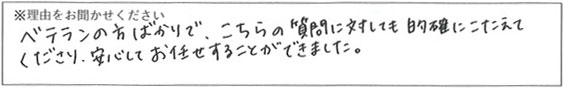 ※理由をお聞かせください
ベテランの方ばかりで、こちらの質問に対しても的確にこたえて
くださり、安心してお任せすることができました。